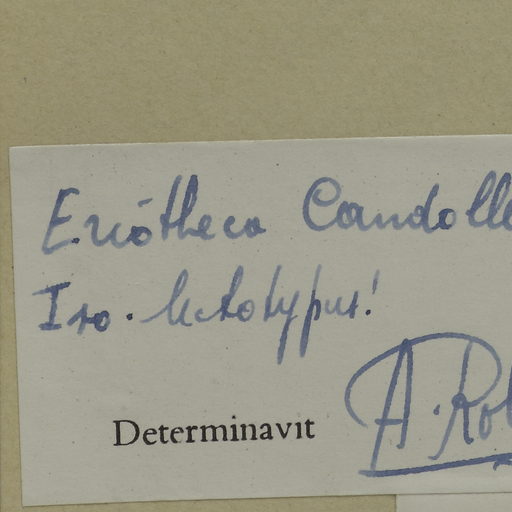 Eriótheca Candolle
Iso-lectotypus!
Determinavit A. Rob